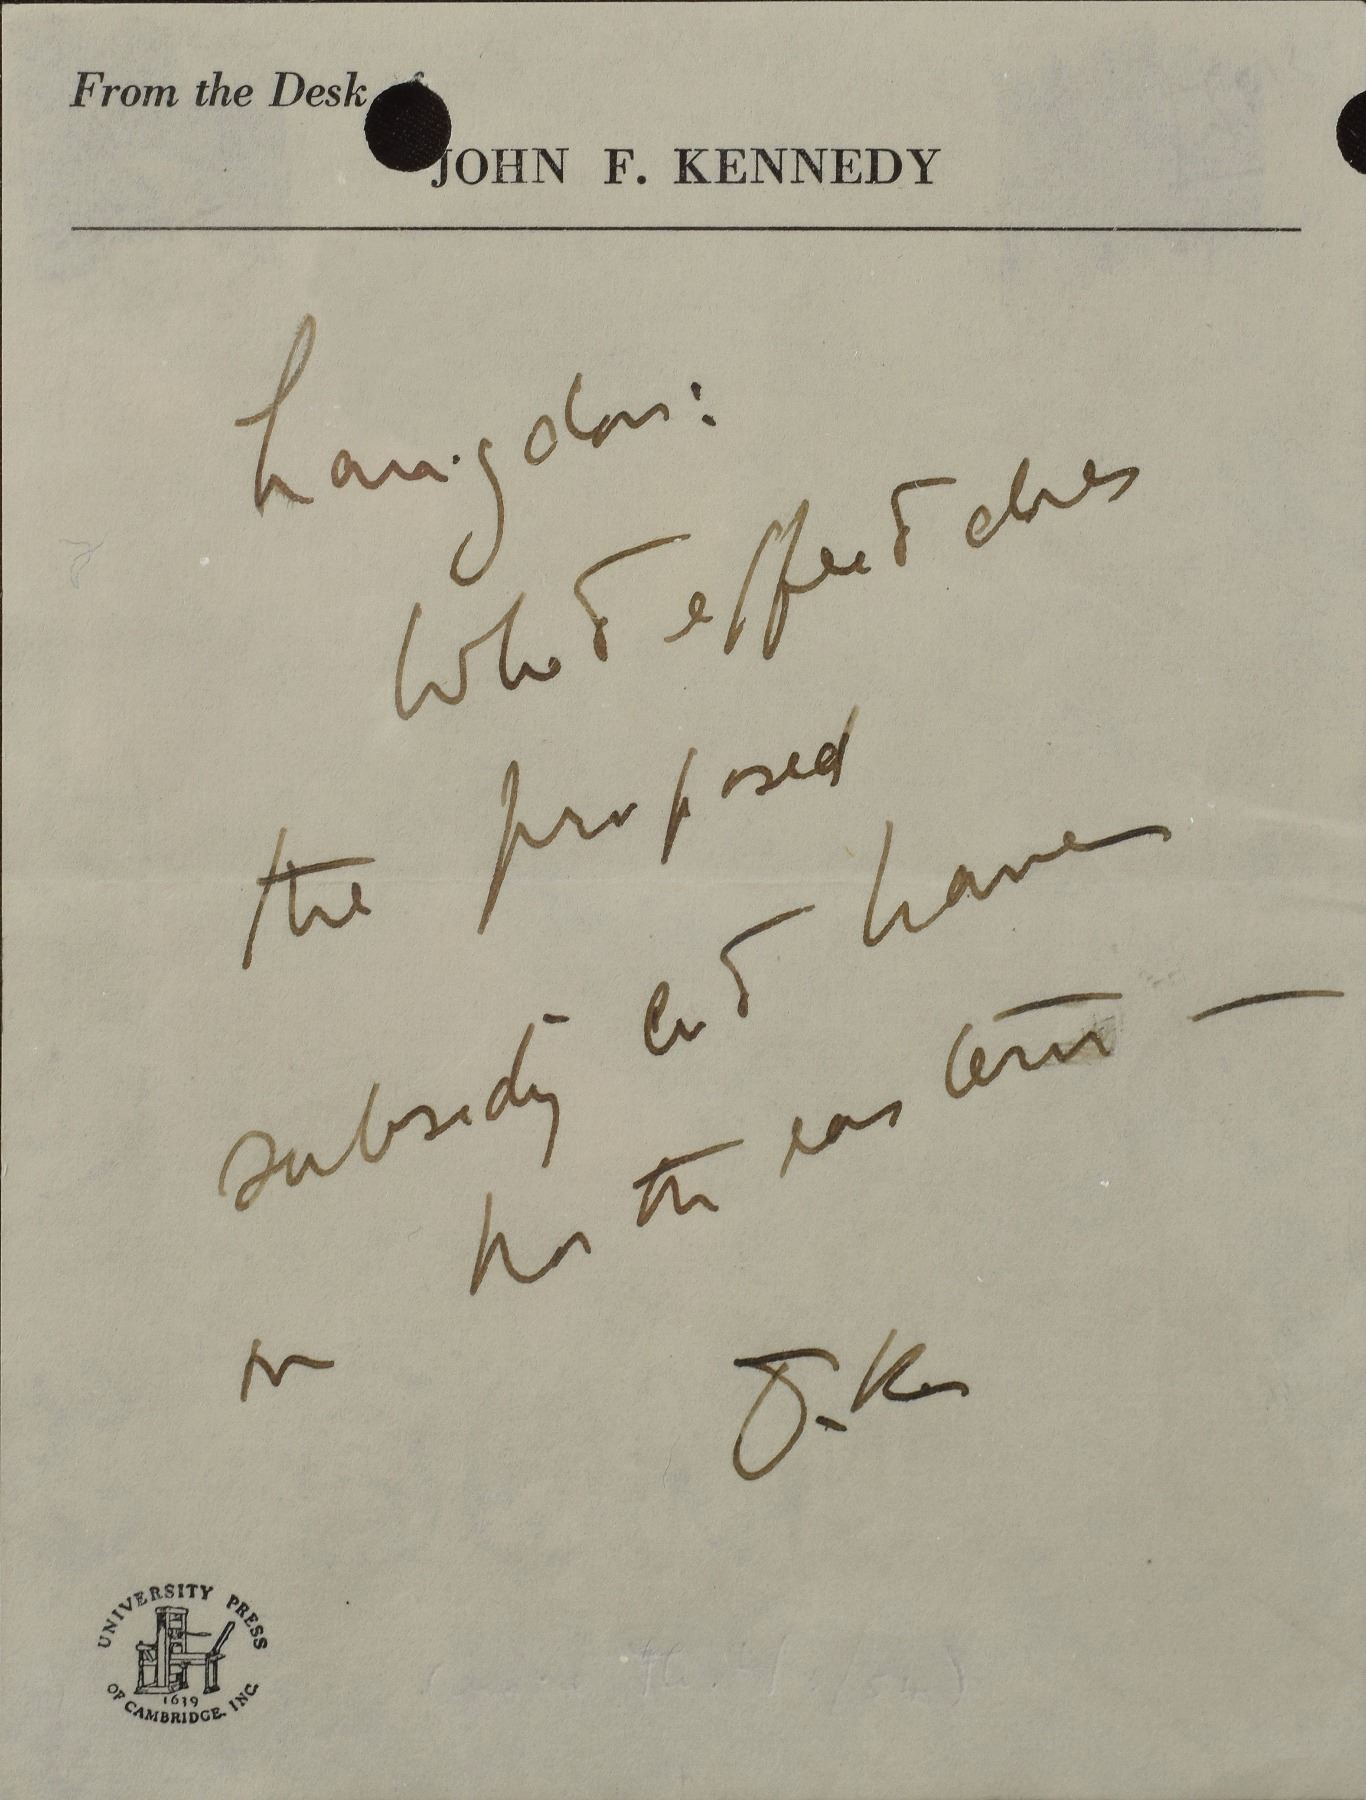 From the Desk
JOHN F. KENNEDY
Langdon:
What effect does
the proposed
subsidy cut have
on northeastern —
J. K.
UNIVERSITY PRESS
OF CAMBRIDGE, INC.
1639